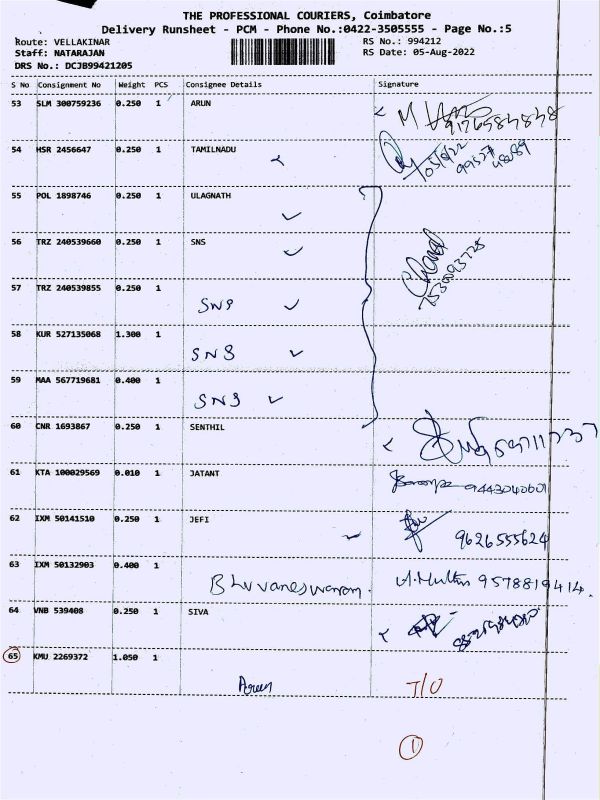 THE PROFESSIONAL COURIERS, Coimbatore
Delivery Runsheet - PCM - Phone No.:0422-3505555 - Page No.:5
Route: VELLAKINAR
RS No.: 994212
Staff: NATARAJAN
RS Date: 05-Aug-2022
DRS No.: DCJB99421205
S No Consignment No Weight PCS Consignee Details Signature
53 SLM 300759236 0.250 1 ARUN
54 HSR 2456647 0.250 1 TAMILNADU
05/8/22
55 POL 1898746 0.250 1 ULAGNATH
56 TRZ 240539660 0.250 1 SNS
57 TRZ 240539855 0.250 1
SNS
58 KUR 527135068 1.300 1
SNS
59 MAA 567719681 0.400 1
SNS
60 CNR 1693867 0.250 1 SENTHIL
61 KTA 100029569 0.010 1 JATANT
9443040601
62 IXM 50141510 0.250 1 JEFI
9626555624
63 IXM 50132903 0.400 1
Bhuvaneswaram. 9578819414.
64 VNB 539408 0.250 1 SIVA
65 KMU 2269372 1.050 1
Arun T/O
1